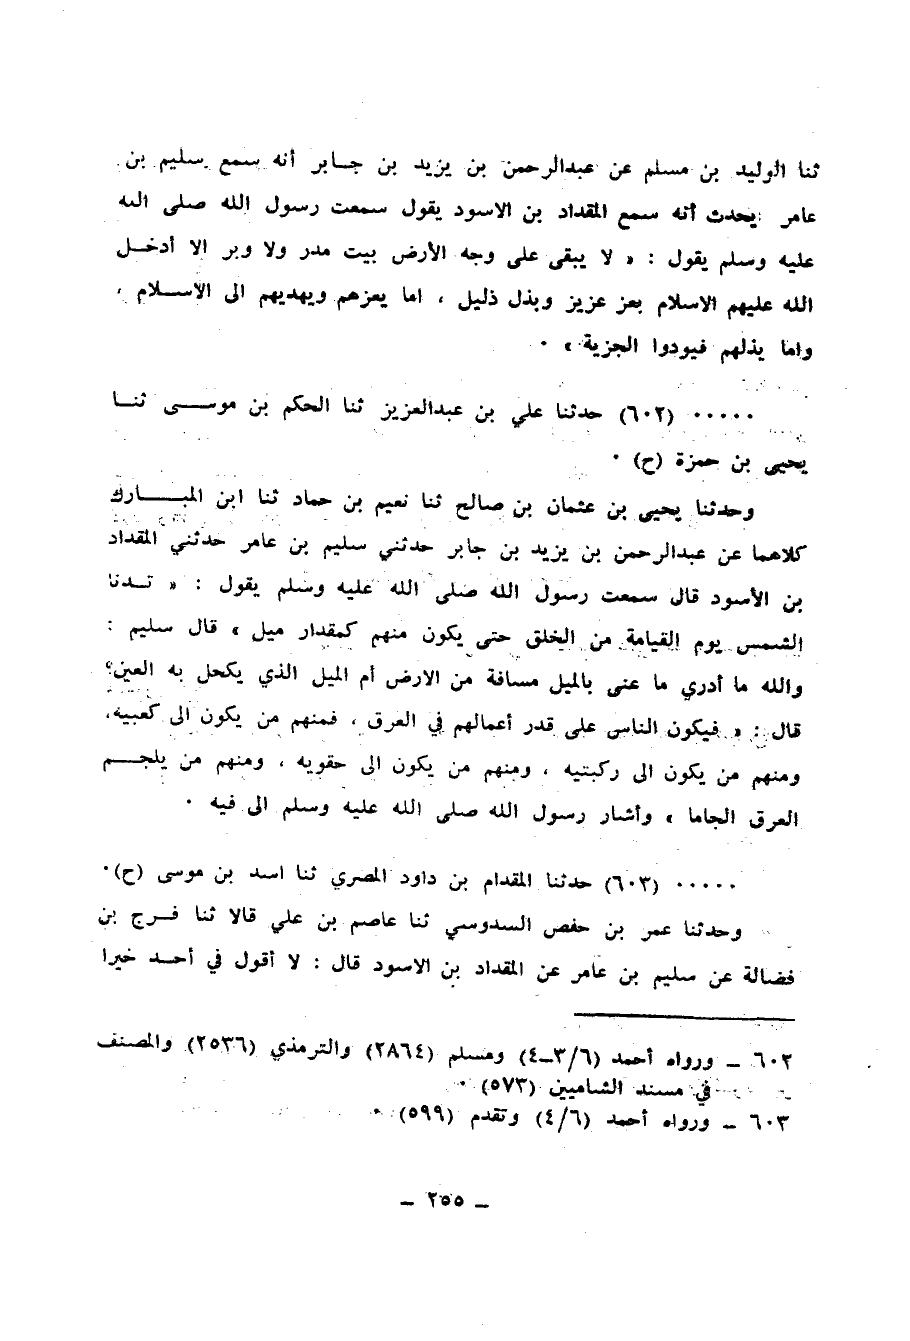 ثنا الوليد بن مسلم عن عبدالرحمن بن يزيد بن جابر أنه سمع سليم بن
عامر يحدث أنه سمع المقداد بن الاسود يقول سمعت رسول الله صلى الله
عليه وسلم يقول : « لا يبقى على وجه الأرض بيت مدر ولا وبر الا أدخل
الله عليهم الاسلام بعز عزيز وبذل ذليل ، اما يعزهم ويهديهم الى الاسلام ،
واما يذلهم فيودوا الجزية » ٠
٠٠٠٠٠ (٦٠٢) حدثنا علي بن عبدالعزيز ثنا الحكم بن موسى ثنا
يحيى بن حمزة (ح) ٠
وحدثنا يحيى بن عثمان بن صالح ثنا نعيم بن حماد ثنا ابن المبارك
كلاهما عن عبدالرحمن بن يزيد بن جابر حدثني سليم بن عامر حدثني المقداد
بن الأسود قال سمعت رسول الله صلى الله عليه وسلم يقول : « تدنا
الشمس يوم القيامة من الخلق حتى يكون منهم كمقدار ميل » قال سليم :
والله ما أدري ما عنى بالميل مسافة من الارض أم الميل الذي يكحل به العين؟
قال : « فيكون الناس على قدر أعمالهم في العرق ، فمنهم من يكون الى كعبيه،
ومنهم من يكون الى ركبتيه ، ومنهم من يكون الى حقويه ، ومنهم من يلجم
العرق الجاما » وأشار رسول الله صلى الله عليه وسلم الى فيه ٠
٠٠٠٠٠ (٦٠٣) حدثنا المقدام بن داود المصري ثنا اسد بن موسى (ح)٠
وحدثنا عمر بن حفص السدوسي ثنا عاصم بن علي قالا ثنا فرج بن
فضالة عن سليم بن عامر عن المقداد بن الاسود قال : لا أقول في أحد خيرا
٦٠٢ ـ ورواه أحمد (٣/٦ـ٤) ومسلم (٢٨٦٤) والترمذي (٢٥٣٦) والمصنف
في مسند الشاميين (٥٧٣) ٠
٦٠٣ ـ ورواه أحمد (٤/٦) وتقدم (٥٩٩) ٠
ـ ٢٥٥ ـ